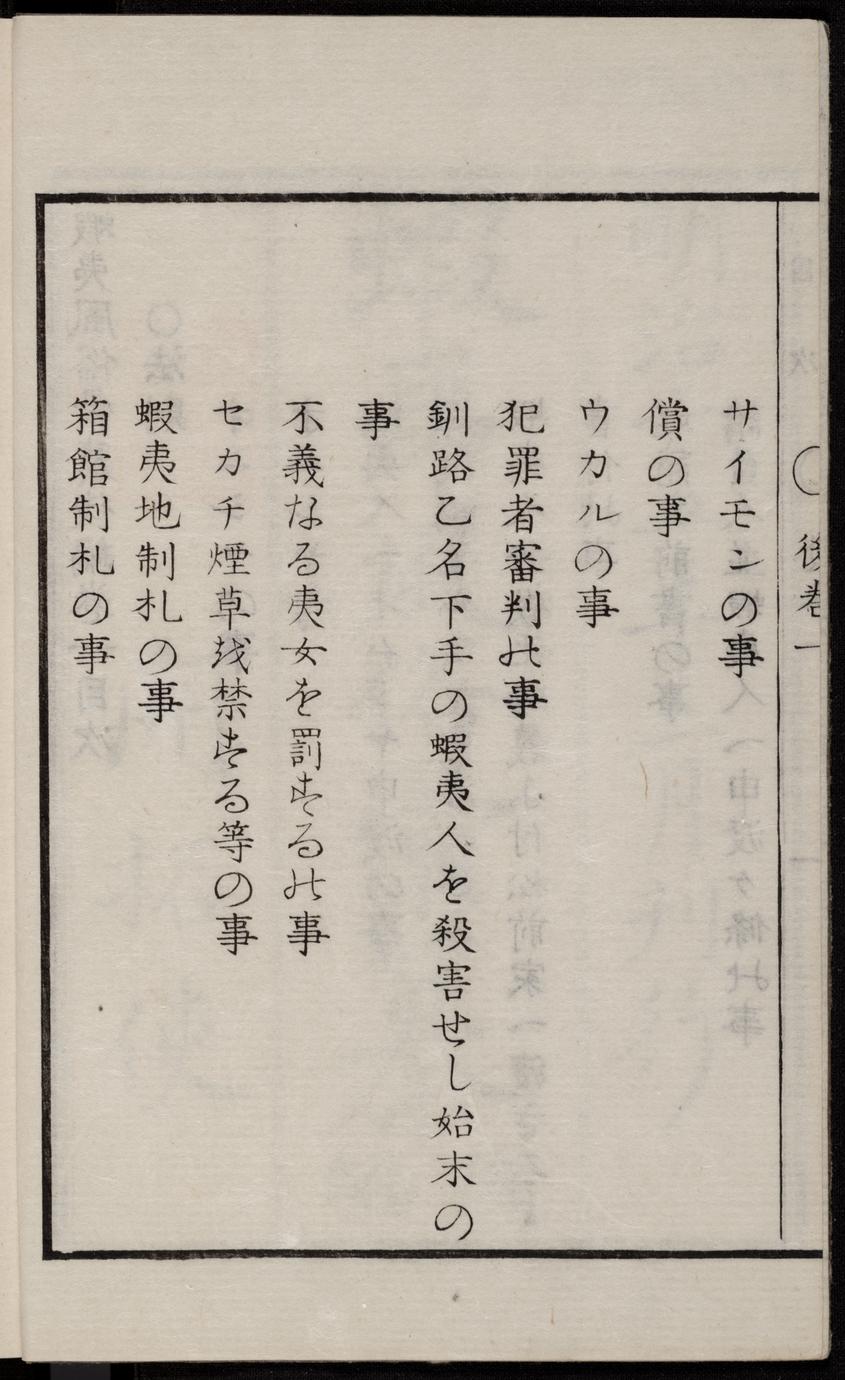 〇後巻一
サイモンの事
償の事
ウカルの事
犯罪者審判の事
釧路乙名下手の蝦夷人を殺害せし始末の
事
不義なる夷女を罰する事
セカチ煙草を禁する等の事
蝦夷地制札の事
箱館制札の事